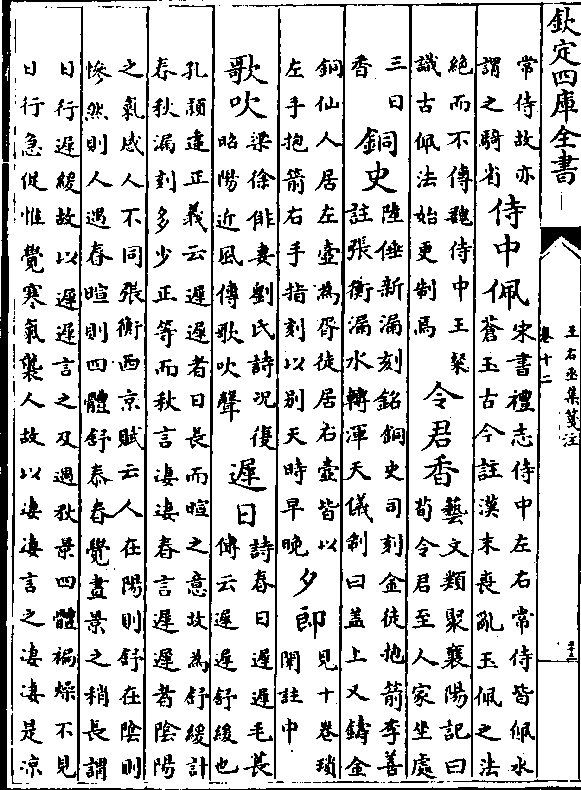 欽定四庫全書
王右丞集箋注
卷十二
常侍故亦
謂之騎省
侍中佩
宋書禮志侍中左右常侍皆佩水
蒼玉古今註漢末喪亂玉佩之法
絶而不傳魏侍中王粲
識古佩法始更制焉
令君香
藝文類聚襄陽記曰
荀令君至人家坐處
三日
香
銅史
陸倕新漏刻銘銅史司刻金徒抱箭李善
註張衡漏水轉渾天儀制曰蓋上又鑄金
銅仙人居左壺為胥徒居右壺皆以
左手抱箭右手指刻以别天時早晚
夕郎
見十卷瑣
闈註中
歌吹
梁徐悱妻劉氏詩况復
昭陽近風傳歌吹聲
遲日
詩春日遲遲毛萇
傳云遲遲舒緩也
孔穎達正義云遲遲者日長而暄之意故為舒緩計
春秋漏刻多少正等而秋言凄凄春言遲遲者陰陽
之氣感人不同張衡西京賦云人在陽則舒在陰則
慘然則人遇春暄則四體舒泰春覺晝景之稍長謂
日行遲緩故以遲遲言之及遇秋景四體褊燥不見
日行急促惟覺寒氣襲人故以凄凄言之凄凄是涼